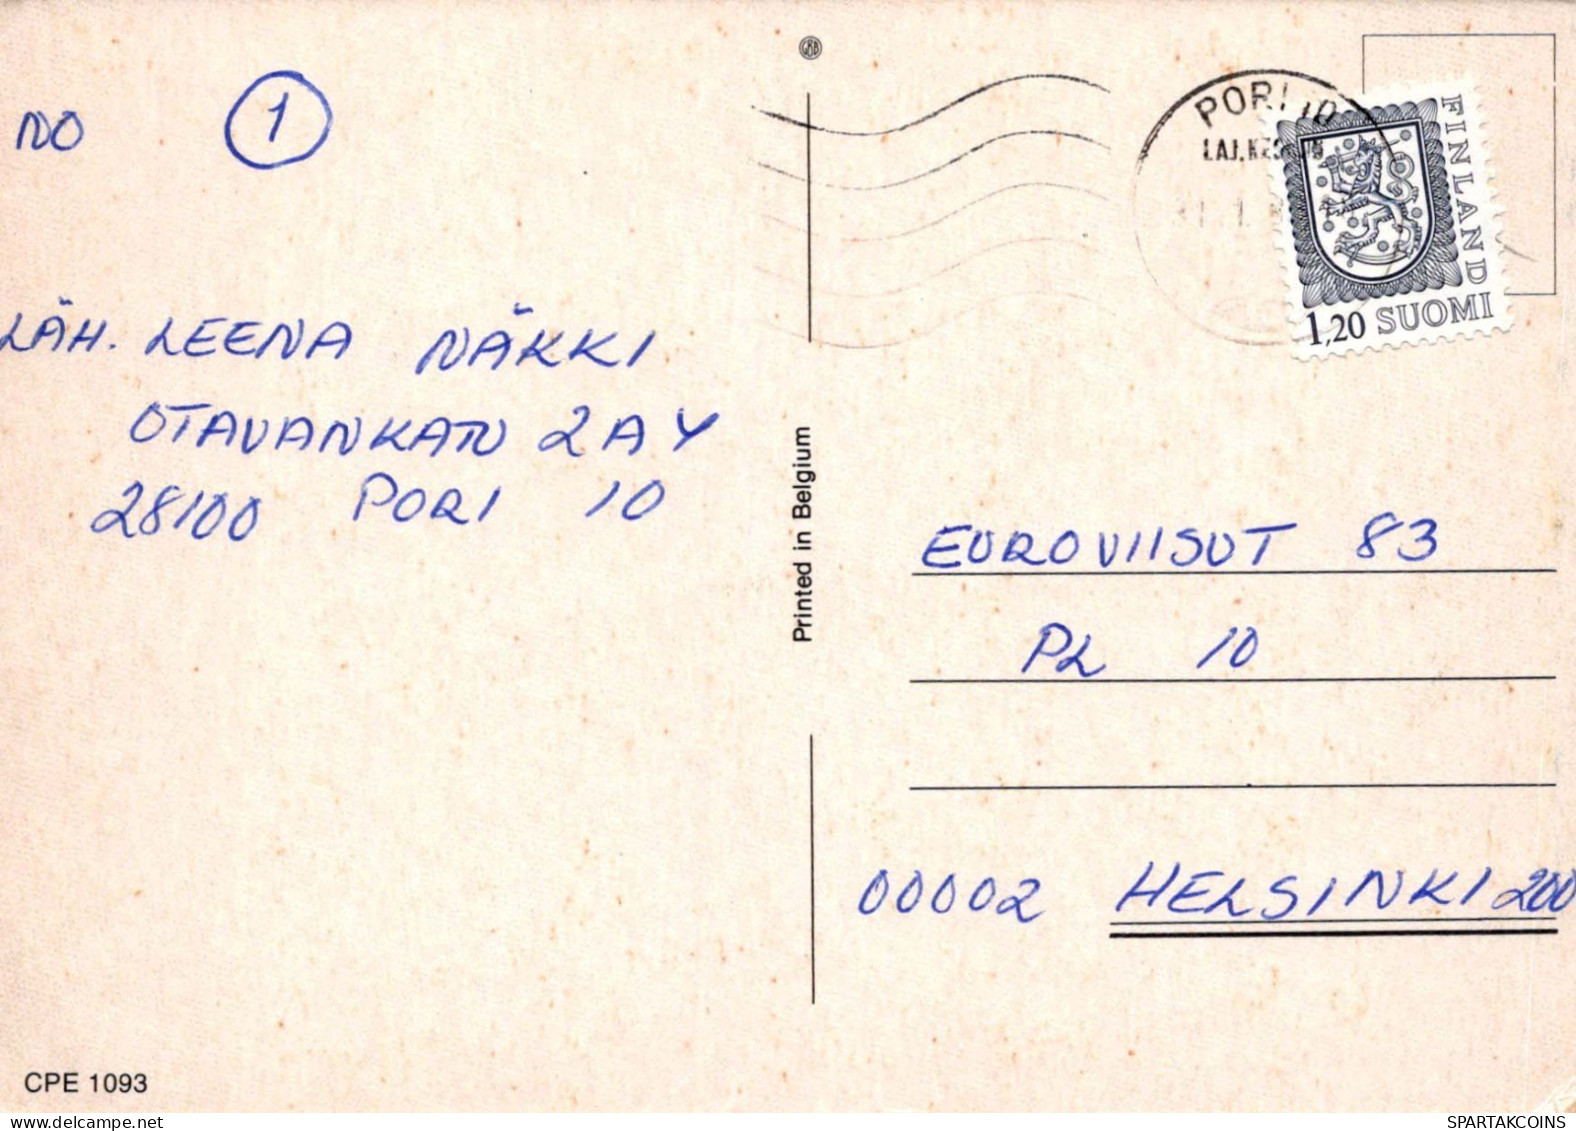 NO 1
LÄH. LEENA NÄKKI
OTAVANKATU 2 A 4
28100 PORI 10
CPE 1093
Printed in Belgium
PORI 10
FINLAND
1,20 SUOMI
EUROVIISUT 83
PL 10
00002 HELSINKI 200
SPARTAKCOINS